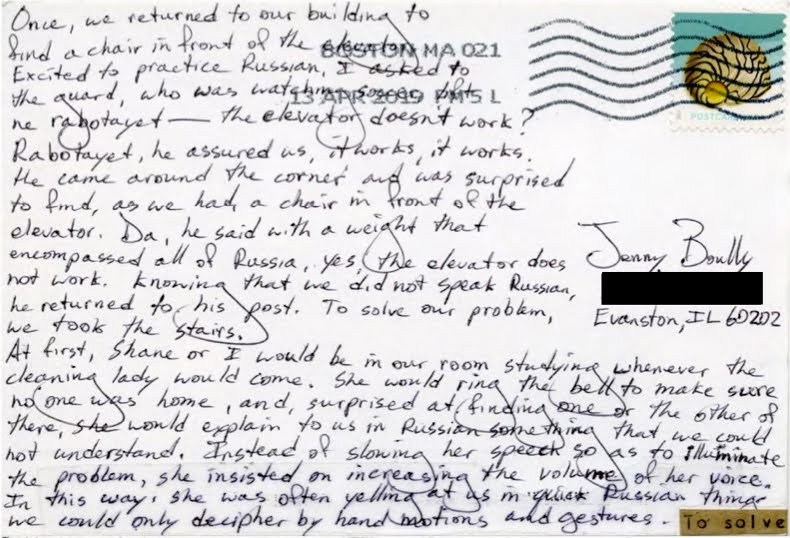 Once, we returned to our building to
find a chair in front of the elevator.
Excited to practice Russian, I asked to
the guard, who was watching soccer, lift
ne rabotayet — the elevator doesn't work?
Rabotayet, he assured us, it works, it works.
He came around the corner and was surprised
to find, as we had, a chair in front of the
elevator. Da, he said with a weight that
encompassed all of Russia, yes, the elevator does
not work. Knowing that we did not speak Russian,
he returned to his post. To solve our problem,
we took the stairs.
At first, Shane or I would be in our room studying whenever the
cleaning lady would come. She would ring the bell to make sure
no one was home, and, surprised at finding one or the other of
there, she would explain to us in Russian something that we could
not understand. Instead of slowing her speech so as to illuminate
the problem, she insisted on increasing the volume of her voice.
In this way, she was often yelling at us in quick Russian things
we could only decipher by hand motions and gestures.
To solve
BOSTON MA 021
13 APR 2019 PM 5 L
POSTCARD
Jenny Boully
Evanston, IL 60202